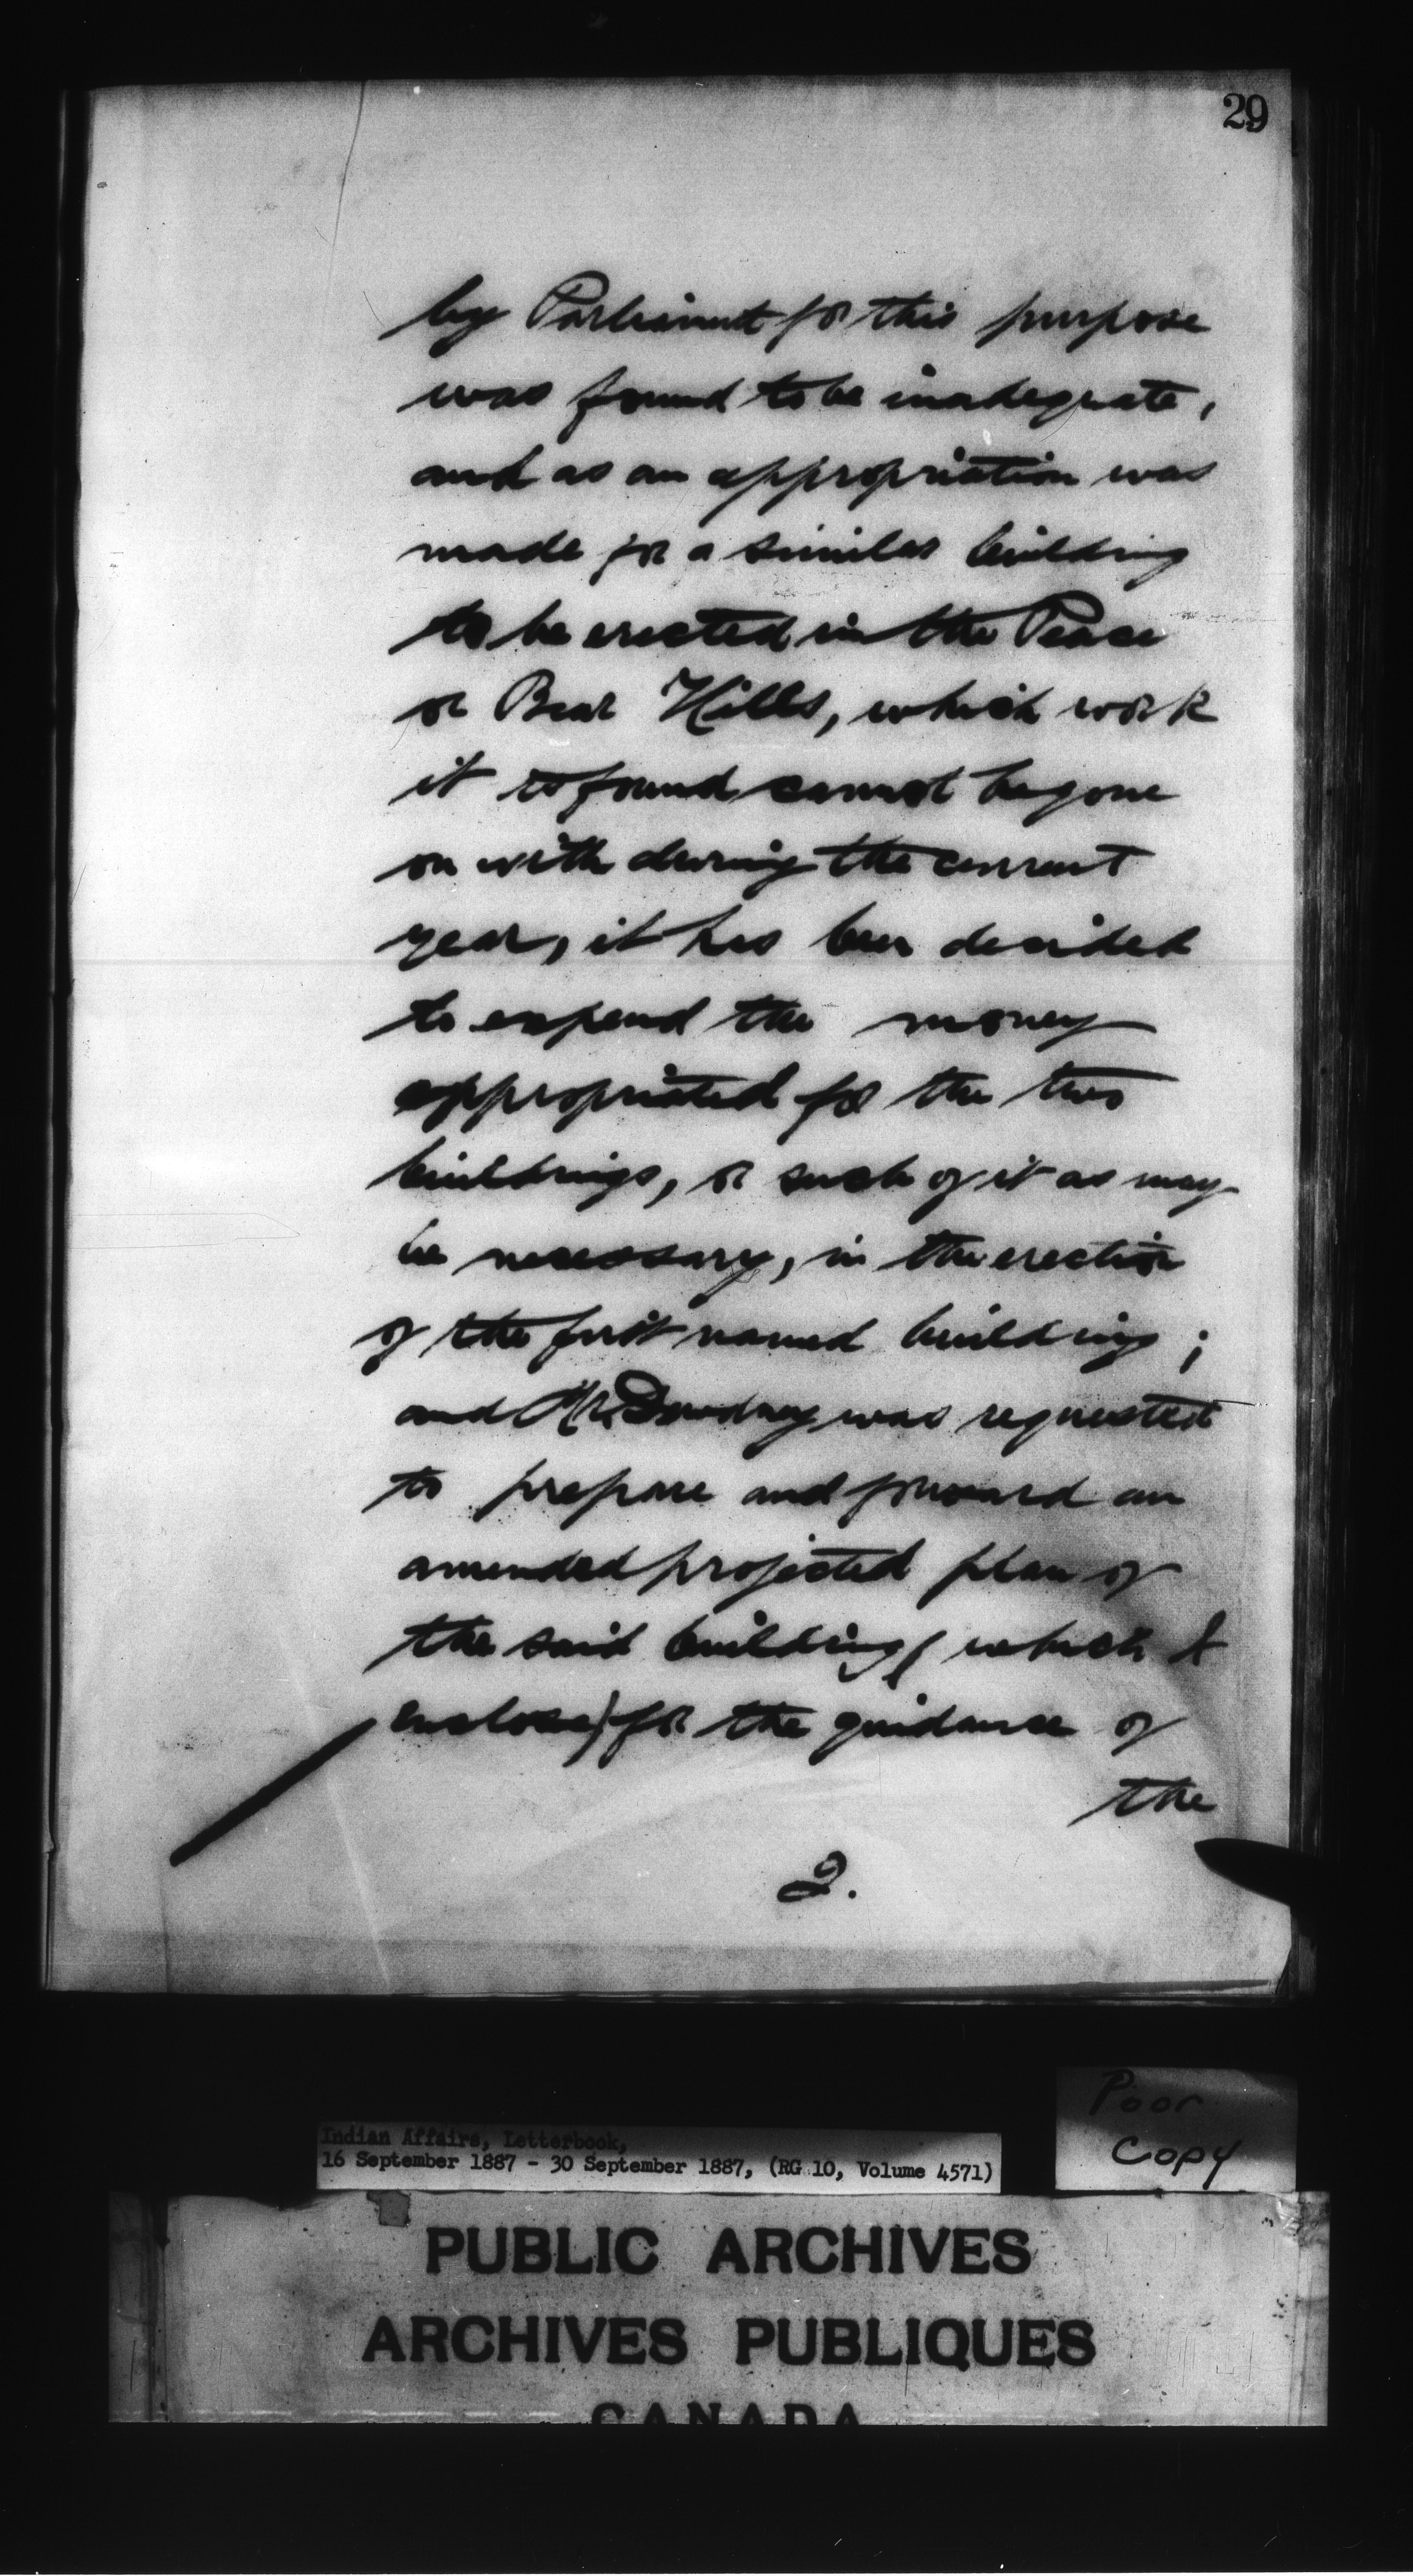 29
by Parliament for this purpose
was found to be inadequate,
and as an appropriation was
made for a similar building
to be erected in the Peace
or Bear Hills, which work
it is found cannot be gone
on with during the current
year, it has been decided
to expend the money
appropriated for the two
buildings, or such of it as may
be necessary, in the erection
of the first named building;
and Mr. Dewdney was requested
to prepare and forward an
amended projected plan of
the said building (which I
enclose) for the guidance of
the
2.
Poor
Copy
Indian Affairs, Letterbook,
16 September 1887 - 30 September 1887, (RG 10, Volume 4571)
PUBLIC ARCHIVES
ARCHIVES PUBLIQUES
CANADA